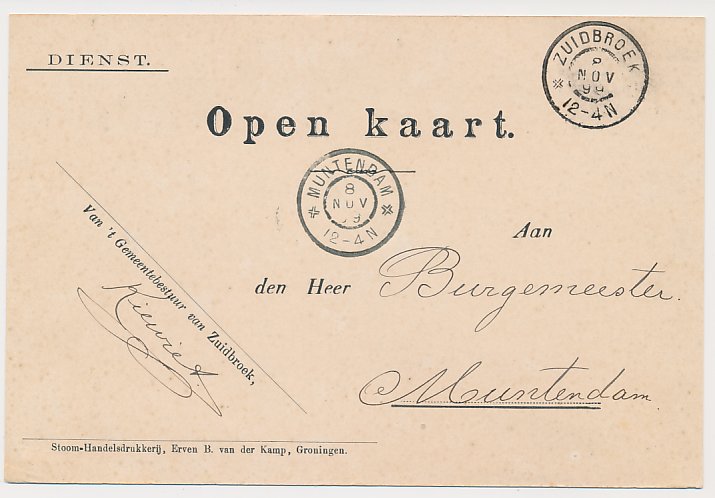 DIENST.
ZUIDBROEK
8
NOV
99
12-4N
Open kaart.
MUNTENDAM
8
NOV
99
12-4N
Aan
den Heer Burgemeester.
Muntendam.
Van 't Gemeentebestuur van Zuidbroek,
Stoom-Handelsdrukkerij, Erven B. van der Kamp, Groningen.